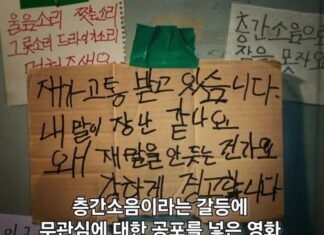 울음소리 짖는소리
그릇소리 드라이소리
멈춰주세요
층간소음으로
잠을 못자요
제가 고통 받고 있습니다.
내 말이 장난 같나요
왜 제 말을 안듣는 건가요
강하게 경고합니다
층간소음이라는 갈등에
무관심에 대한 공포를 넣은 영화